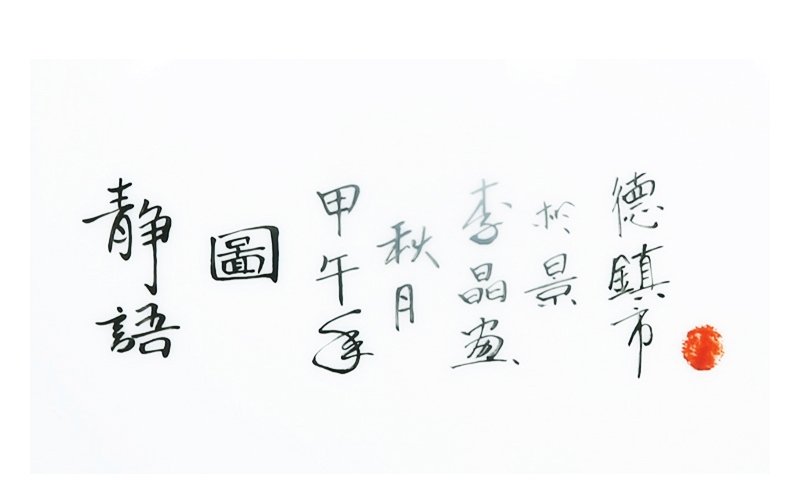 静語
圖
甲午年
秋月
李晶画
於景
德鎮市